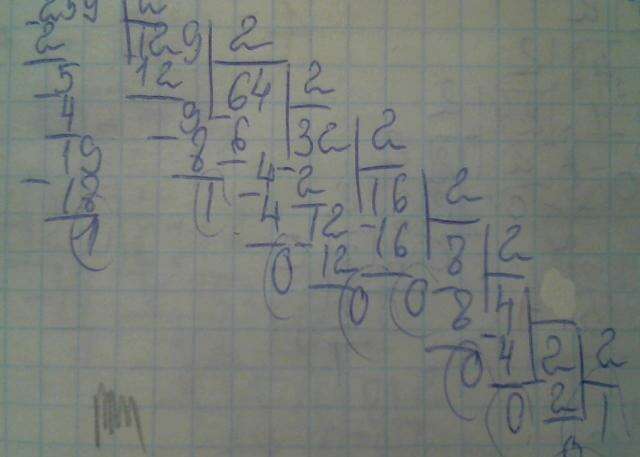 259 2
2 129 2
5 12 64 2
4 9 6 32 2
19 8 4 2 16 2
18 1 4 12 16 8 2
1 0 12 0 8 4 2
0 0 4 2 2
0 2 1
0